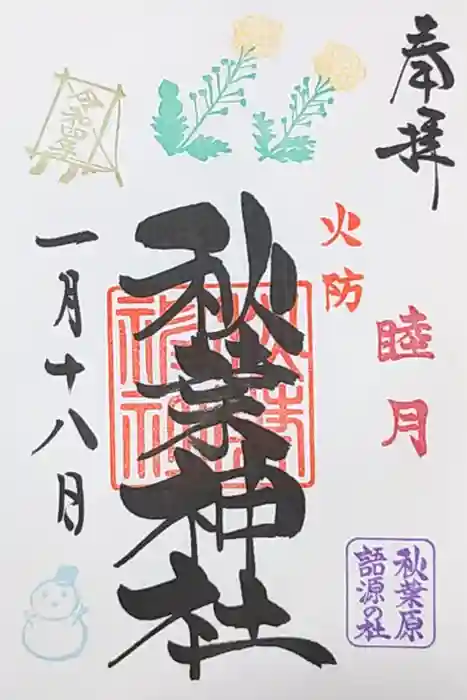 奉拝
火防
睦月
秋葉神社
秋葉神社
秋葉原
語源の社
令和四年
一月十八日